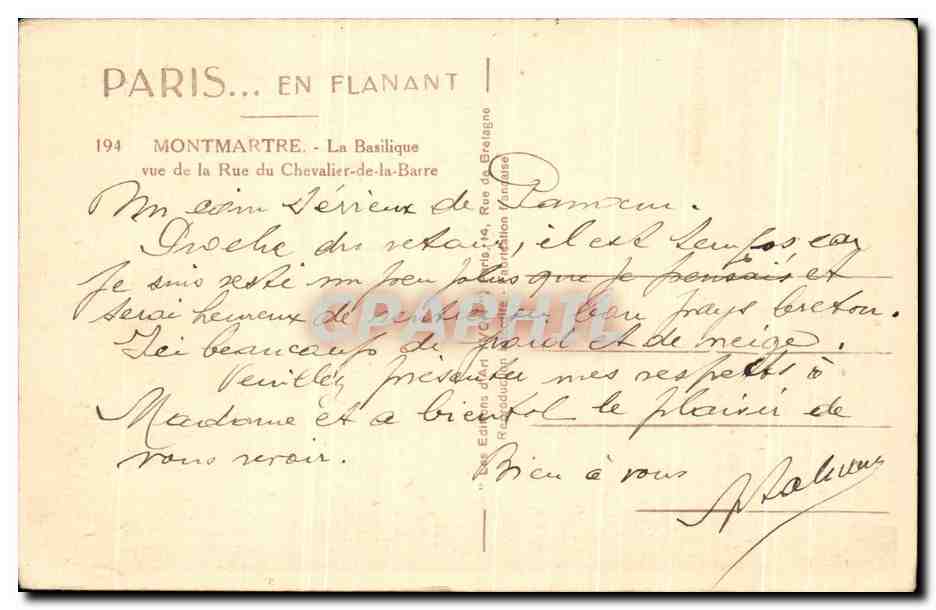 PARIS... EN FLANANT
194 MONTMARTRE. - La Basilique
vue de la Rue du Chevalier-de-la-Barre
Un de
Proche du retour, il est temps car
je suis resté un peu plus que je pensais et
serai heureux de rentrer au bon pays breton.
Ici beaucoup de froid et de neige.
Veuillez présenter mes respects à
Madame et a bientot le plaisir de
vous revoir. Bien à vous
"Les Editions d'Art Paris, 14, Rue de Bretagne
Reproduction Interdite Fabrication Française
CPAPHIL